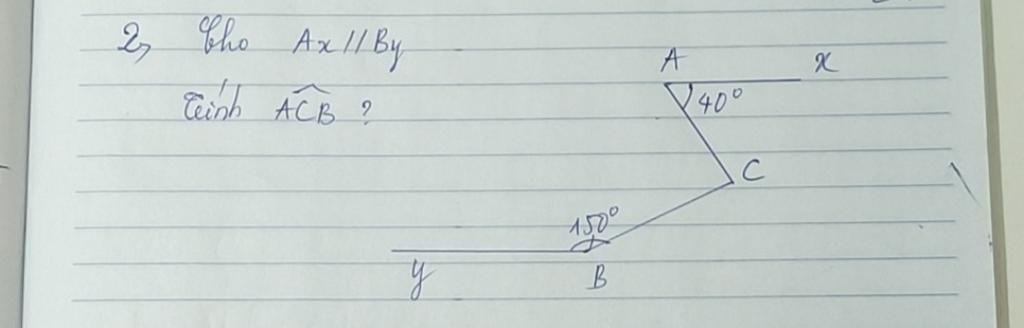 2, Cho Ax // By
Tính \widehat{ACB} ?
A x
40°
C
150°
y B